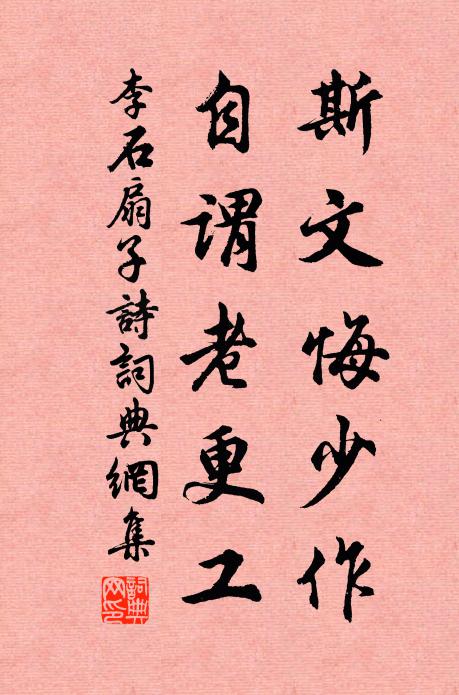 斯文悔少作
自謂老更工
李石扇子詩詞典網集
詞典網印